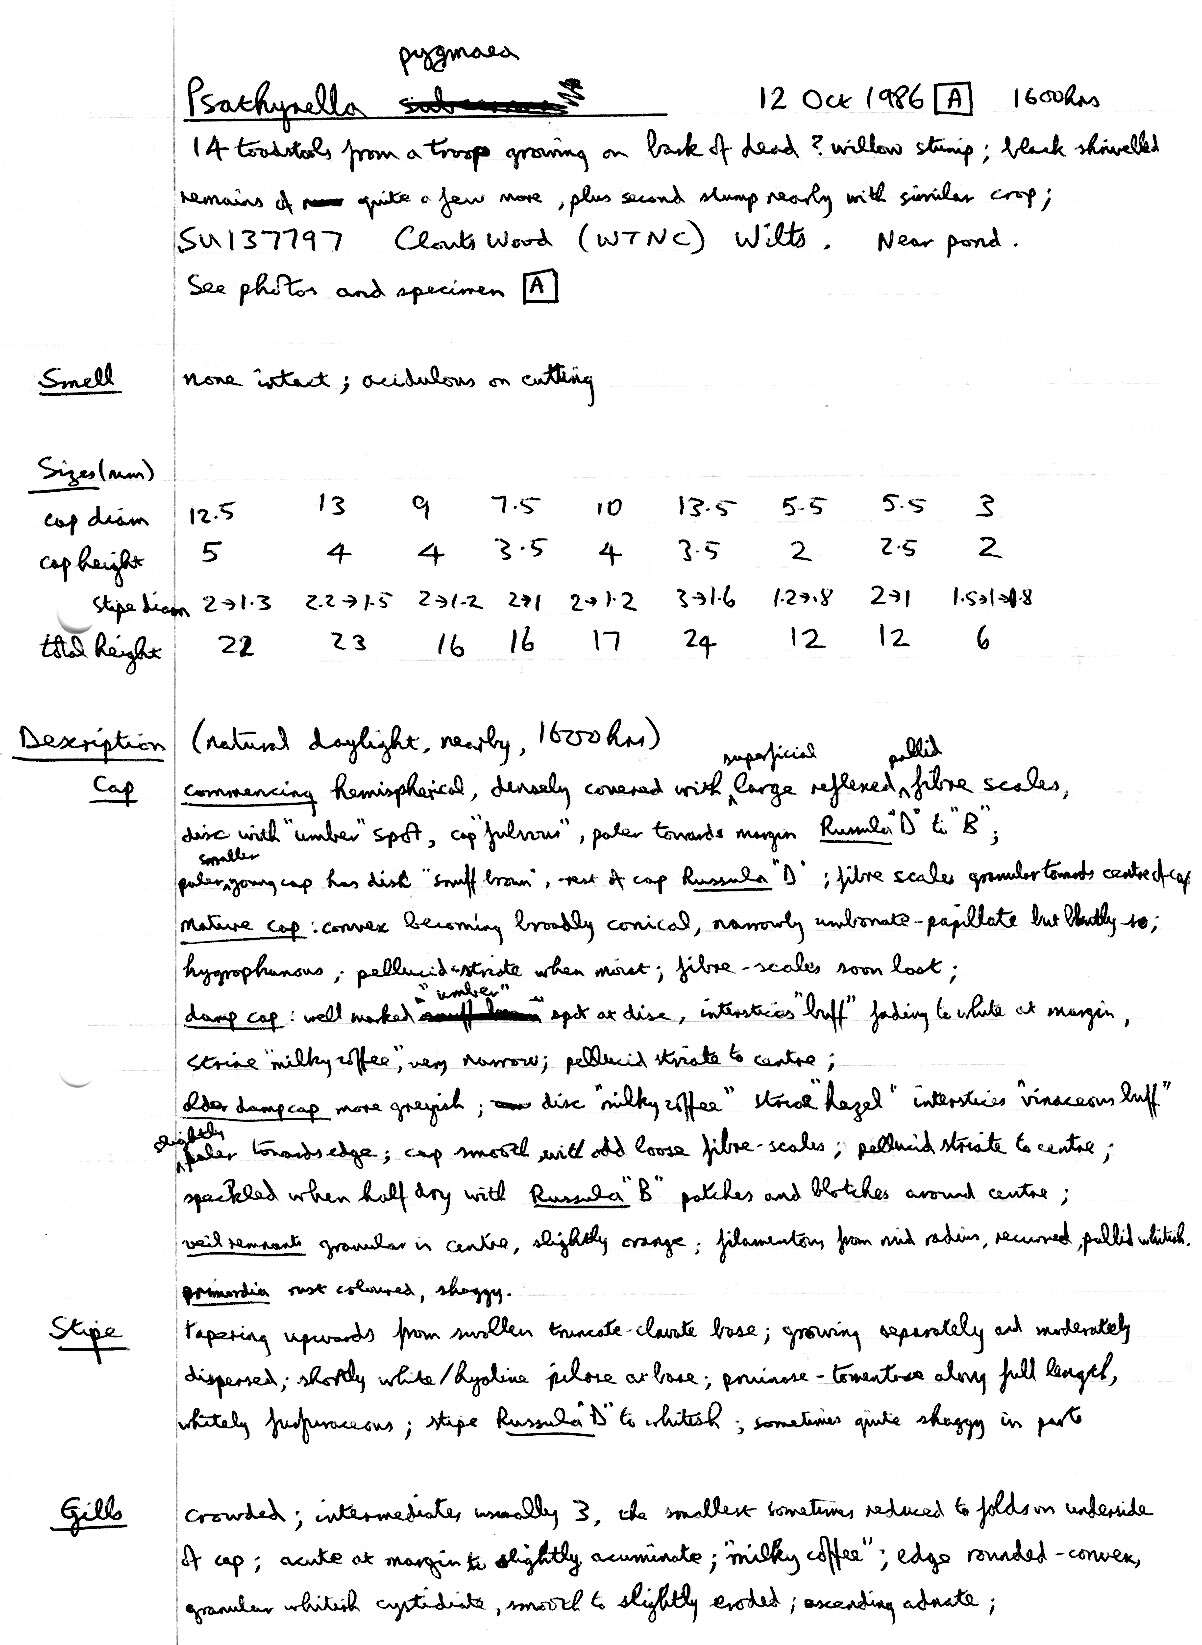 pygmaea
Psathyrella 12 Oct 1986 A 1600hrs
14 toadstools from a troop growing on bark of dead ? willow stump; black shrivelled
remains of quite a few more, plus second stump nearby with similar crop;
SU137797 Clouts Wood (WTNC) Wilts. Near pond.
See photos and specimen A
Smell none intact; acidulous on cutting
Sizes (mm)
cap diam 12.5 13 9 7.5 10 13.5 5.5 5.5 3
cap height 5 4 4 3.5 4 3.5 2 2.5 2
stipe diam 2→1.3 2.2→1.5 2→1.2 2→1 2→1.2 3→1.6 1.2→.8 2→1 1.5→1→.8
total height 22 23 16 16 17 24 12 12 6
Description (natural daylight, nearby, 1600hrs)
superficial pallid
Cap commencing hemispherical, densely covered with large reflexed fibre scales,
disc with "umber" spot, cap "fulvous", paler towards margin Russula "D" to "B";
smaller
paler, young cap has disk "snuff brown", rest of cap Russula "D"; fibre scales granular towards centre of cap
mature cap: convex becoming broadly conical, narrowly umbonate-papillate but bluntly so;
hygrophanous; pellucid-striate when moist; fibre-scales soon lost;
"umber"
damp cap: well marked spot at disc, interstices "buff" fading to white at margin,
striae "milky coffee", very narrow; pellucid striate to centre;
older damp cap more greyish; disc "milky coffee" striae "hazel" interstices "vinaceous buff"
slightly
paler towards edge; cap smooth with odd loose fibre-scales; pellucid striate to centre;
speckled when half dry with Russula "B" patches and blotches around centre;
veil remnants granular in centre, slightly orange; filamentous from mid radius, recurved, pallid whitish.
primordia rust coloured, shaggy.
Stipe tapering upwards from swollen truncate-clavate base; growing separately and moderately
dispersed; shortly white/hyaline pilose at base; pruinose-tomentose along full length,
whitely furfuraceous; stipe Russula "D" to whitish; sometimes quite shaggy in parts
Gills crowded; intermediates usually 3, the smallest sometimes reduced to folds on underside
of cap; acute at margin to slightly acuminate; "milky coffee"; edge rounded-convex,
granular whitish cystidiate, smooth to slightly eroded; ascending adnate;